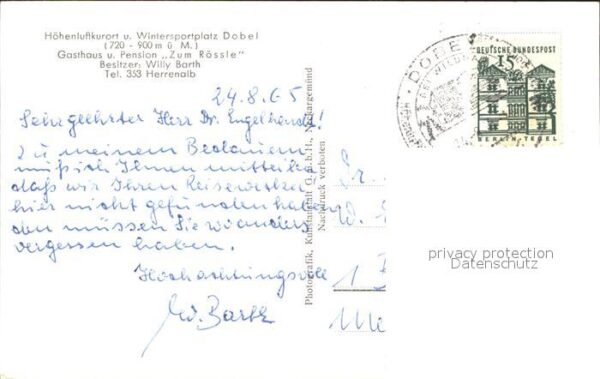 Höhenluftkurort u. Wintersportplatz Dobel
(720 - 900 m ü M.)
Gasthaus u. Pension „Zum Rössle"
Besitzer: Willy Barth
Tel. 353 Herrenalb
24.8.65
Sehr geehrter Herr Dr. Engelhardt!
Zu meinem Bedauern
muß ich Ihnen mitteilen
daß wir Ihren Reisewecker
hier nicht gefunden haben
den müssen Sie wo anders
vergessen haben.
Hochachtungsvoll
W. Barth
Photografik, Kunstanstalt G.m.b.H., Neckargemünd
Nachdruck verboten
DOBEL
DEUTSCHE BUNDESPOST
15
BERLIN-TEGEL
privacy protection
Datenschutz